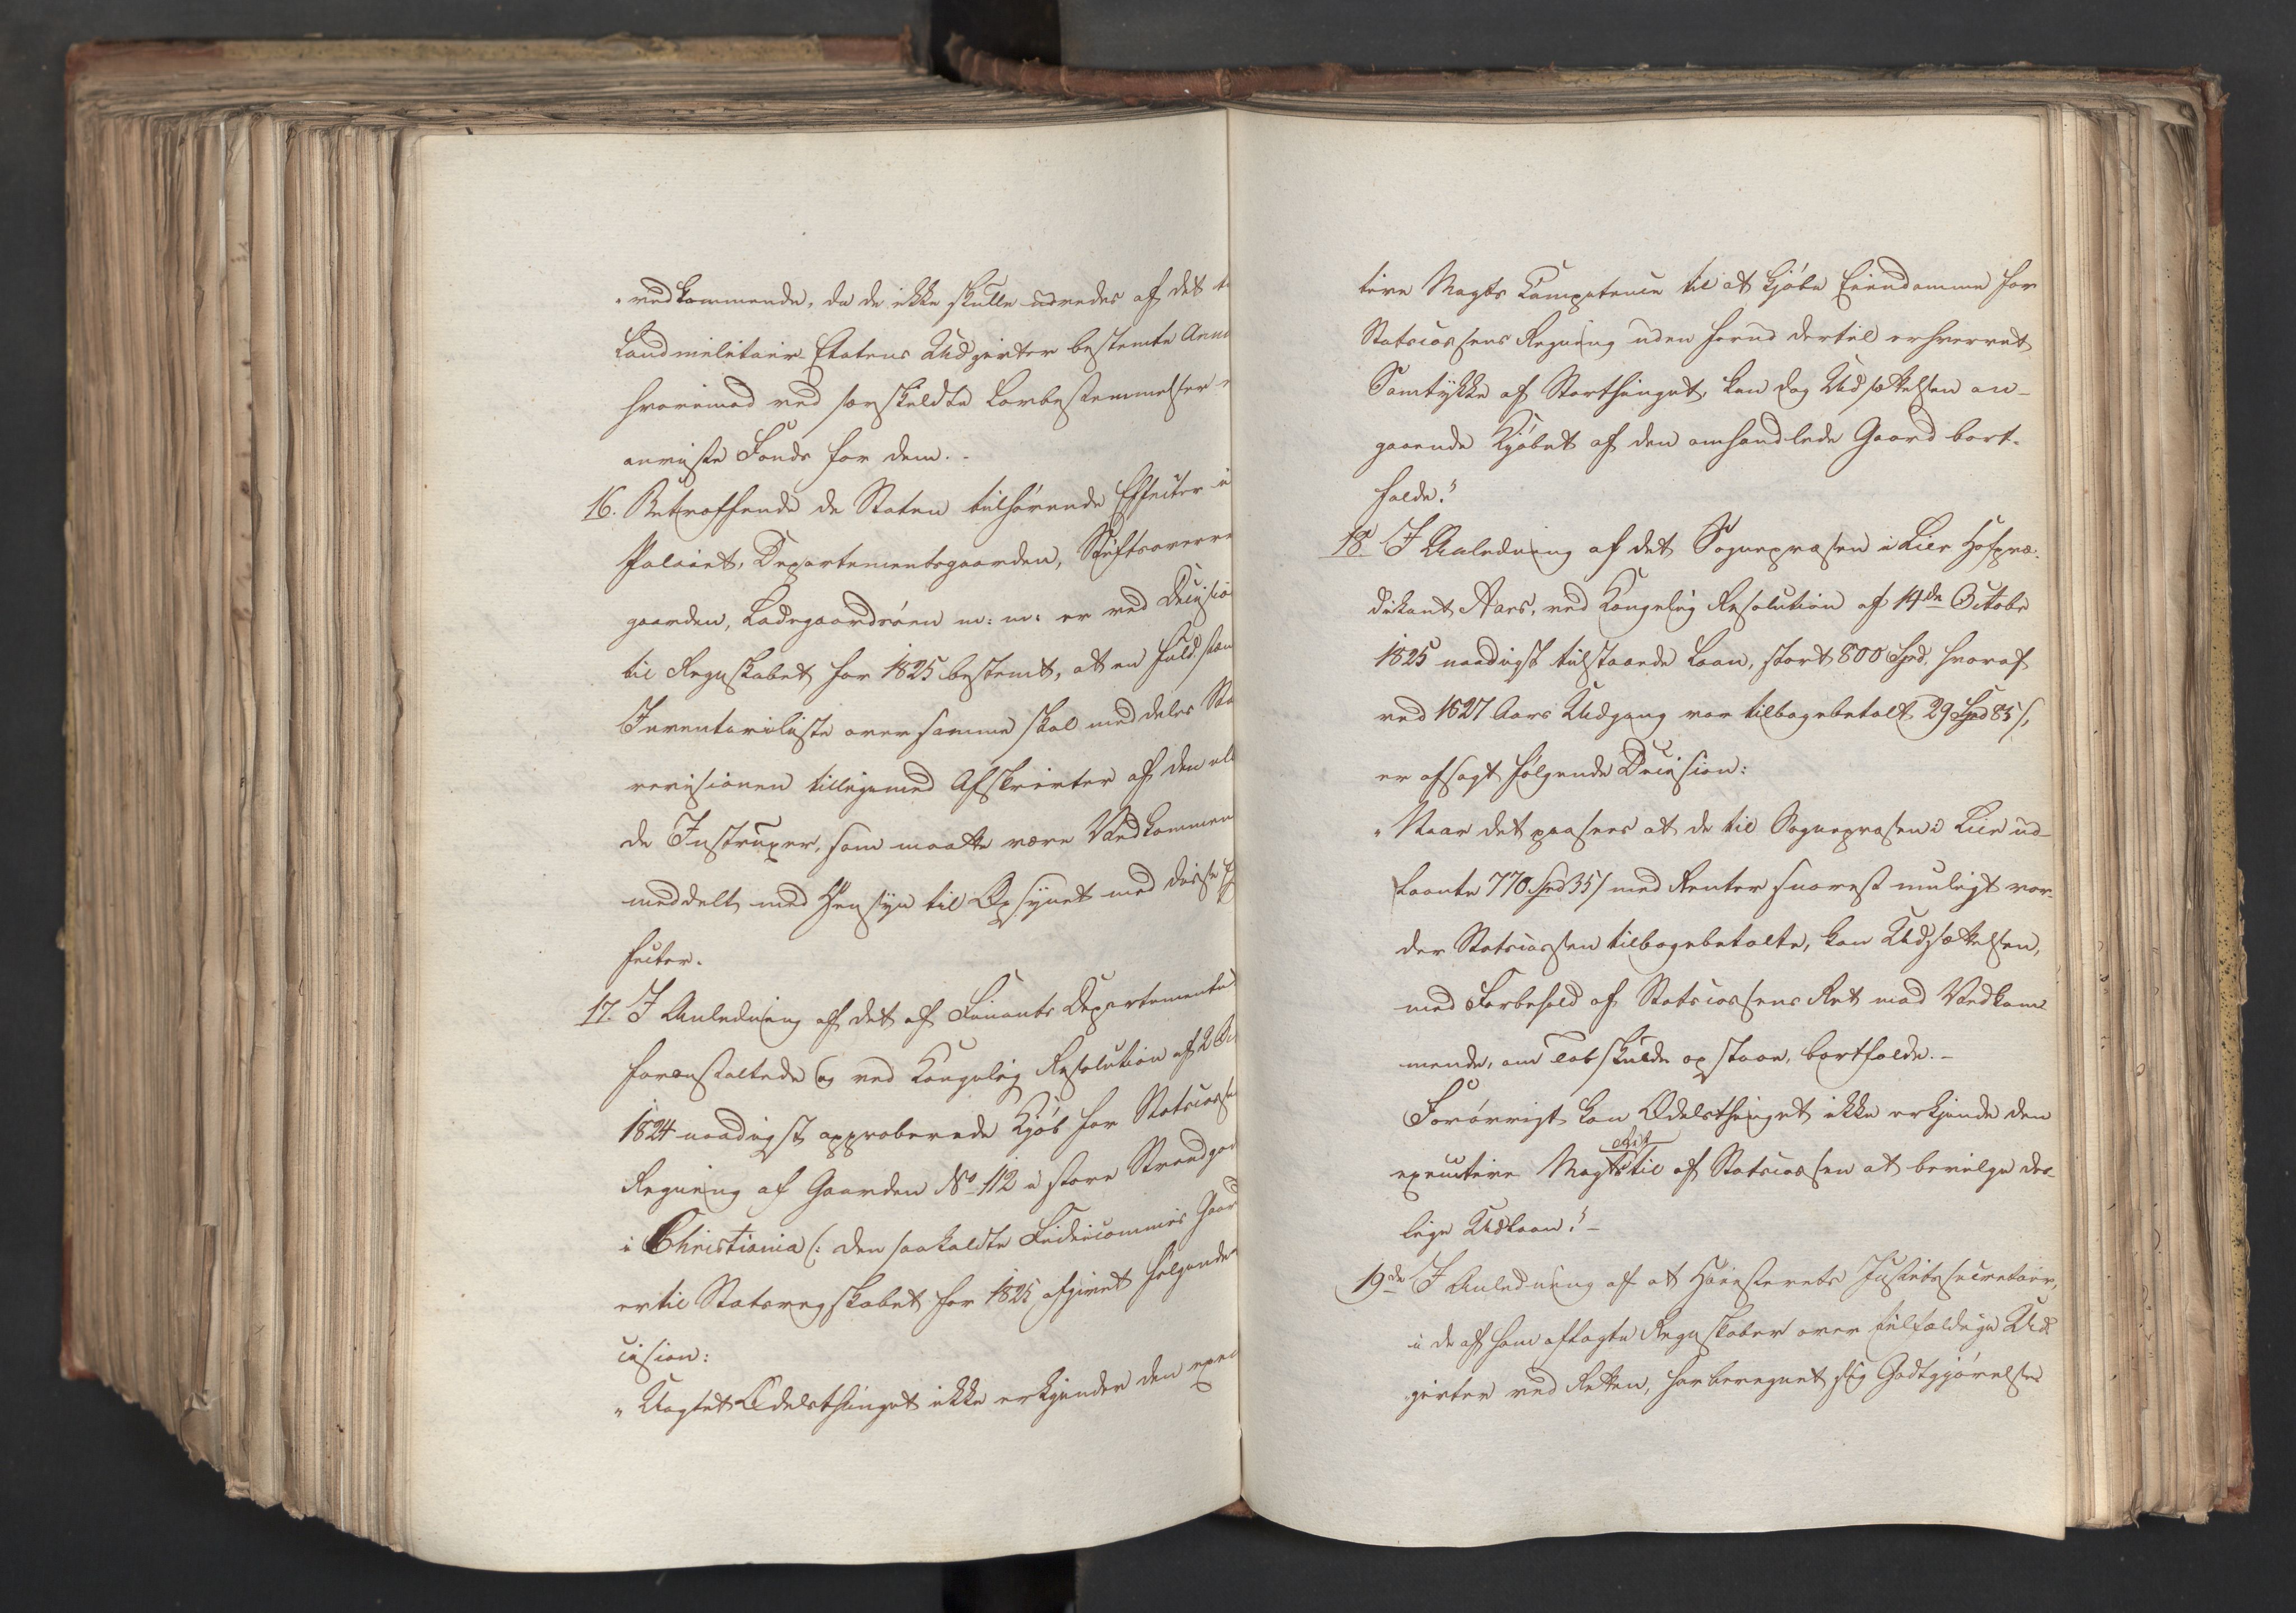 „vedkommende, da de ikke skulle udredes af det t
Landmilitair-Etatens Udgivter bestemte Annu
hvorimod ved særskildte Lovbestemmelser
anviiste Fonds for dem. -
16. Betræffende de Staten tilhørende Effecter i
Palaiet, Departementsgaarden, Stiftsoverre
gaarden, Ladegaardsøen m: m: er ved Decisio
til Regnskabet for 1825 bestemt, at en fuldstæn
Inventariliste over samme skal meddeles Sta
revisionen tilligemed Afskrivter af den el
de Instruxer, som maatte være Vedkommen
meddelt med Hensyn til Opsynet med disse Ef
fecter.
17. I Anledning af det af Finants Departementet
foranstaltede og ved Kongelig Resolution af 2 De
1824 naadigst approberede Kjøb for Statscassen
Regning af Gaarden No 112 i store Strandgad
i Christiania (: den saakaldte Fideicommis Gaar
er til Statsregnskabet for 1825 afgivet følgende
cision:
„Uagtet Odelsthinget ikke erkjender den execu
tive Magts Competence til at kjøbe Eiendomme for
Statscassens Regning uden forud dertil erhvervet
Samtykke af Storthinget, kan dog Udsættelsen an-
gaaende Kjøbet af den omhandlede Gaard bort-
falde."
18. I Anledning af det Sognepræsten i Lier Hofpræ-
dikant Aars, ved Kongelig Resolution af 14de Octobr
1825 naadigst tilstaaede Laan, stort 800 Spd. hvoraf
ved 1827 Aars Udgang var tilbagebetalt 29 Spd 85 s,
er afsagt følgende Decision:
„Naar det paasees at de til Sognepræsten i Lier ud-
laante 770 Spd 35 s med Renter snarest muligt vor-
der Statscassen tilbagebetalte, kan Udsættelsen,
med Forbehold af Statscassens Ret mod Vedkom-
mende, om Tab skulde opstaae, bortfalde. -
Forøvrigt kan Odelsthinget ikke erkjende den
executive Magts Ret til af Statscassen at bevilge des-
lige Udlaan." -
19de I Anledning af at Høiesterets Justitssecretair,
i de af ham aflagte Regnskaber over tilfældige Ud-
givter ved Retten, har beregnet sig Godtgjørelse